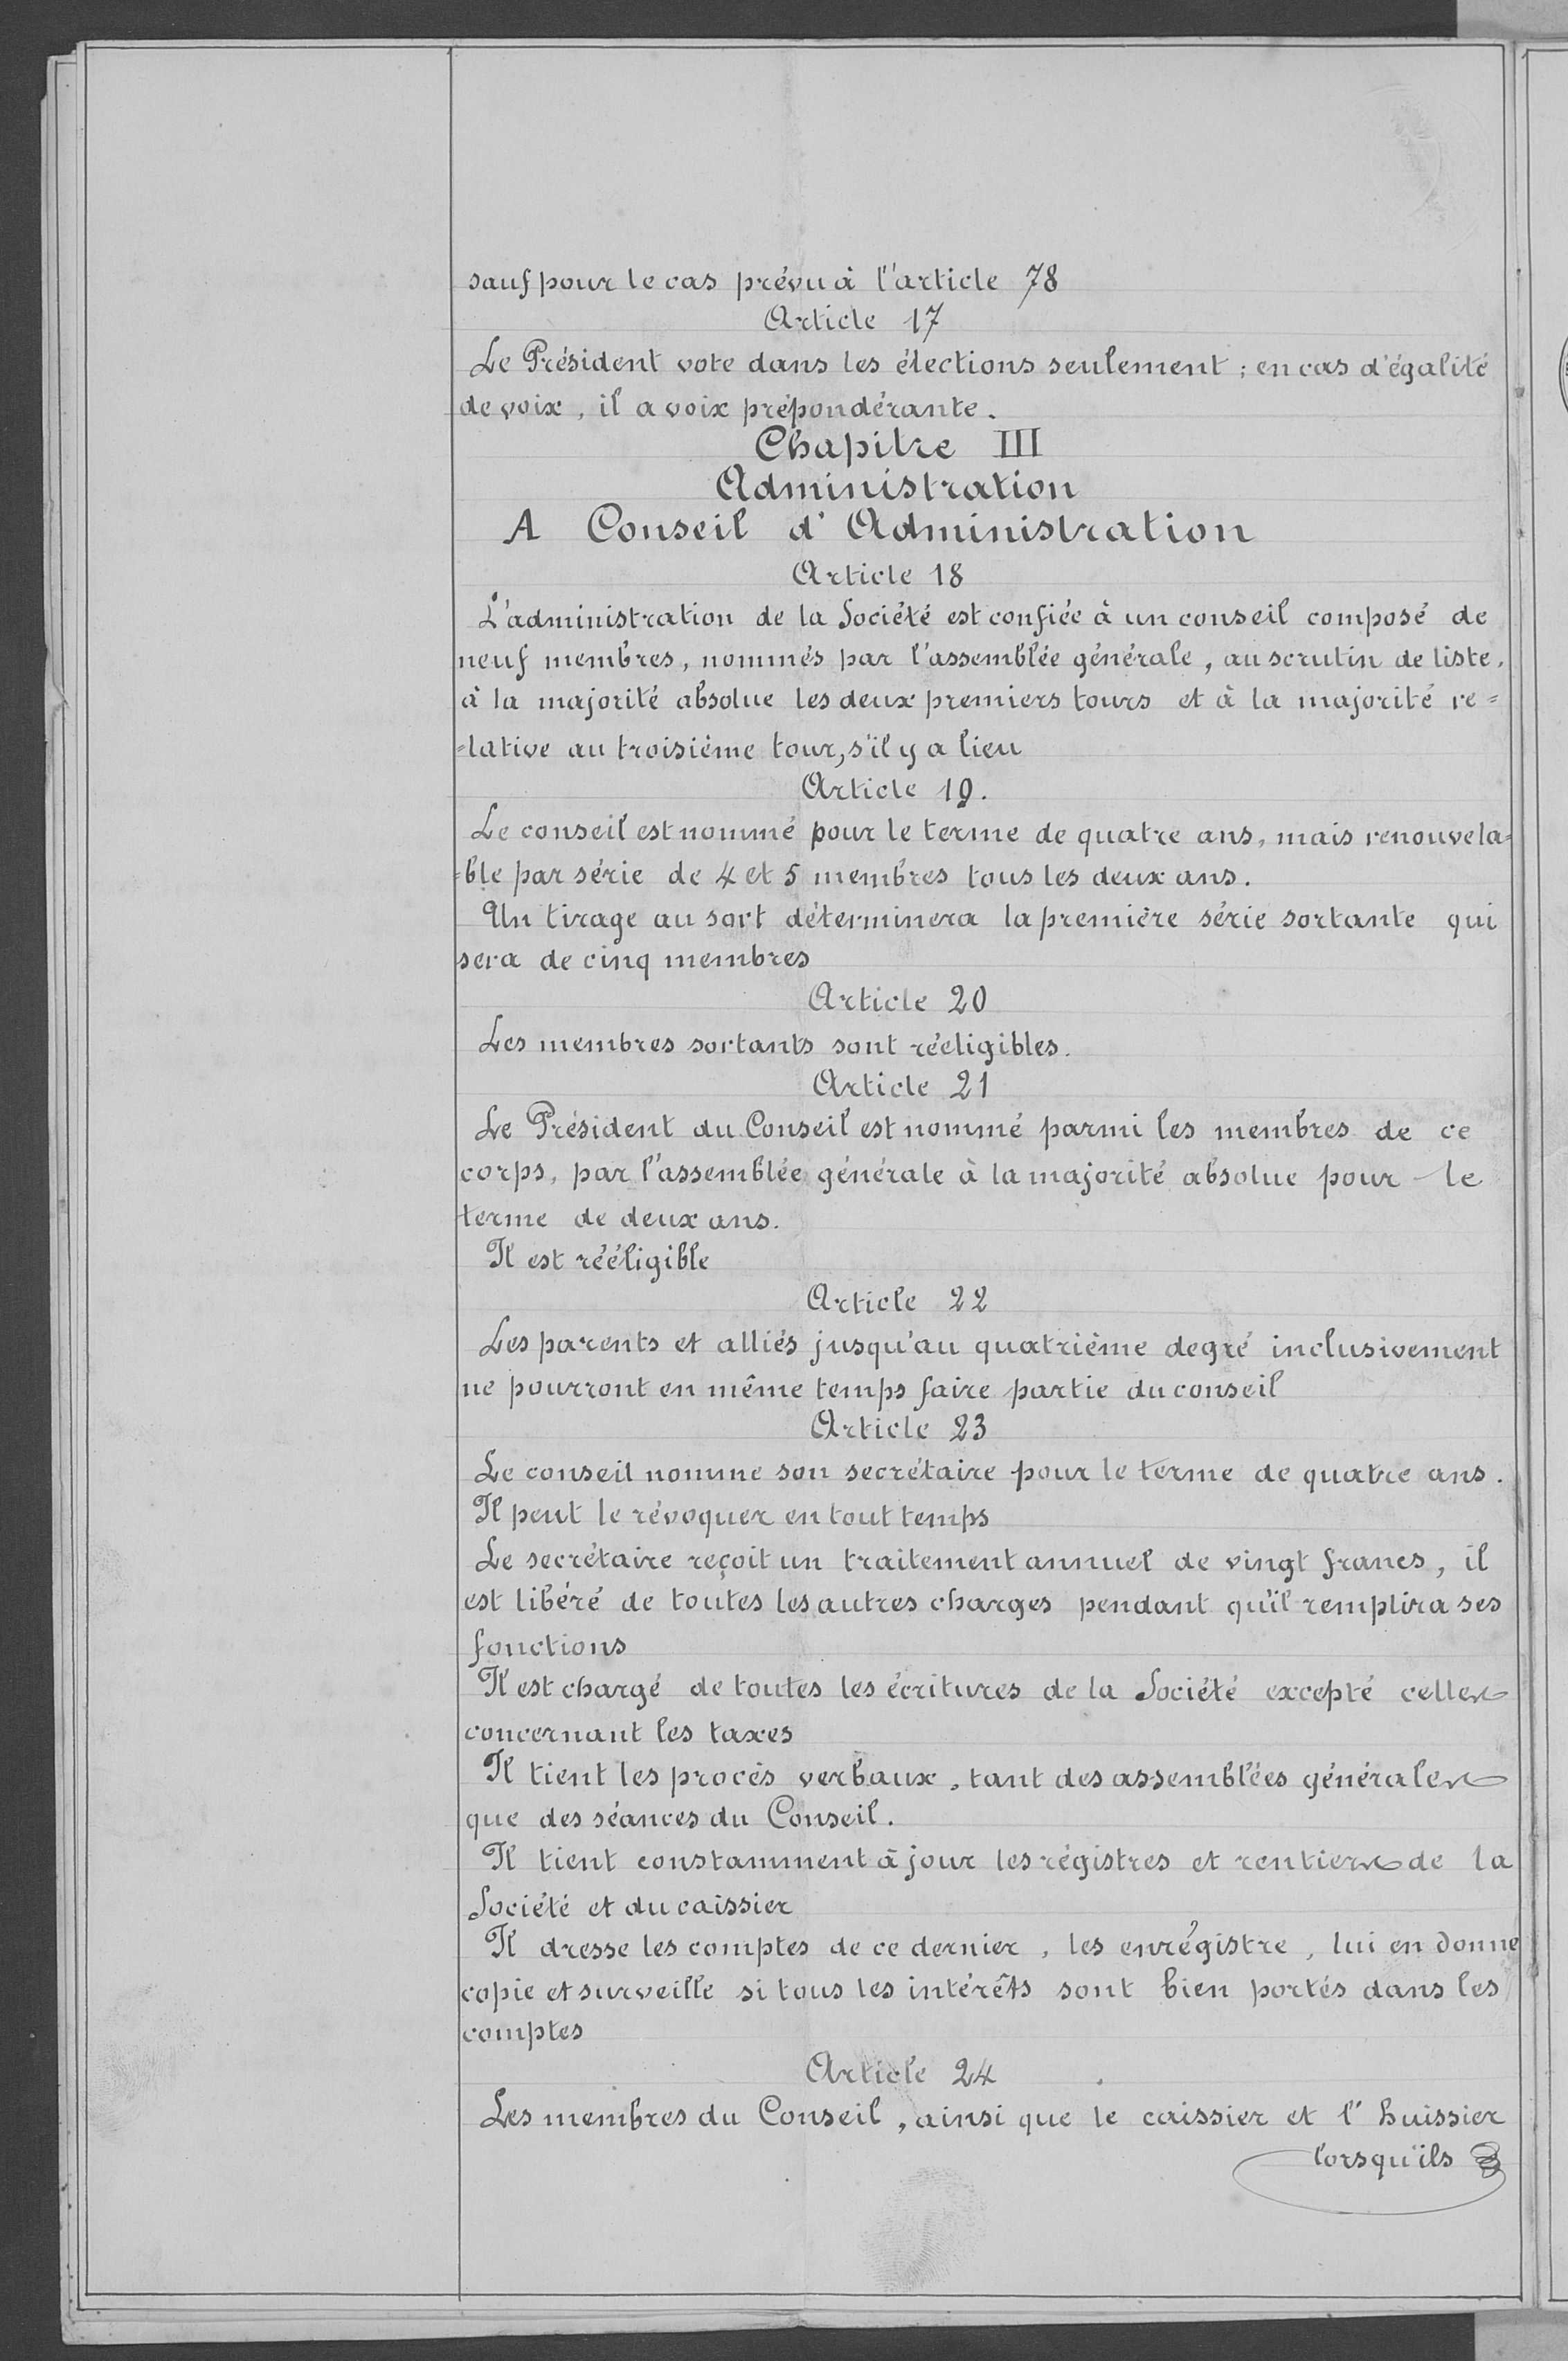 sauf pour le cas prévu à l'article 78
Article 17
Le Président vote dans les élections seulement ; en cas d'égalité
de voix, il a voix prépondérante.
Chapitre III
Administration
A Conseil d'Administration
Article 18
L'administration de la Société est confiée à un conseil composé de
neuf membres, nommés par l'assemblée générale, au scrutin de liste,
à la majorité absolue les deux premiers tours et à la majorité re=
=lative au troisième tour, s'il y a lieu
Article 19.
Le conseil est nommé pour le terme de quatre ans, mais renouvela=
=ble par série de 4 et 5 membres tous les deux ans.
Un tirage au sort déterminera la première série sortante qui
sera de cinq membres
Article 20
Les membres sortants sont rééligibles.
Article 21
Le Président du Conseil est nommé parmi les membres de ce
corps, par l'assemblée générale à la majorité absolue pour le
terme de deux ans.
Il est rééligible
Article 22
Les parents et alliés jusqu'au quatrième degré inclusivement
ne pourront en même temps faire partie du conseil
Article 23
Le conseil nomme son secrétaire pour le terme de quatre ans.
Il peut le révoquer en tout temps
Le secrétaire reçoit un traitement annuel de vingt francs, il
est libéré de toutes les autres charges pendant qu'il remplira ses
fonctions
Il est chargé de toutes les écritures de la Société excepté celles
concernant les taxes
Il tient les procès verbaux, tant des assemblées générales
que des séances du Conseil.
Il tient constamment à jour les régistres et rentiers de la
Société et du caissier
Il dresse les comptes de ce dernier, les enrégistre, lui en donne
copie et surveille si tous les intérêts sont bien portés dans les
comptes
Article 24
Les membres du Conseil, ainsi que le caissier et l'huissier
lorsqu'ils